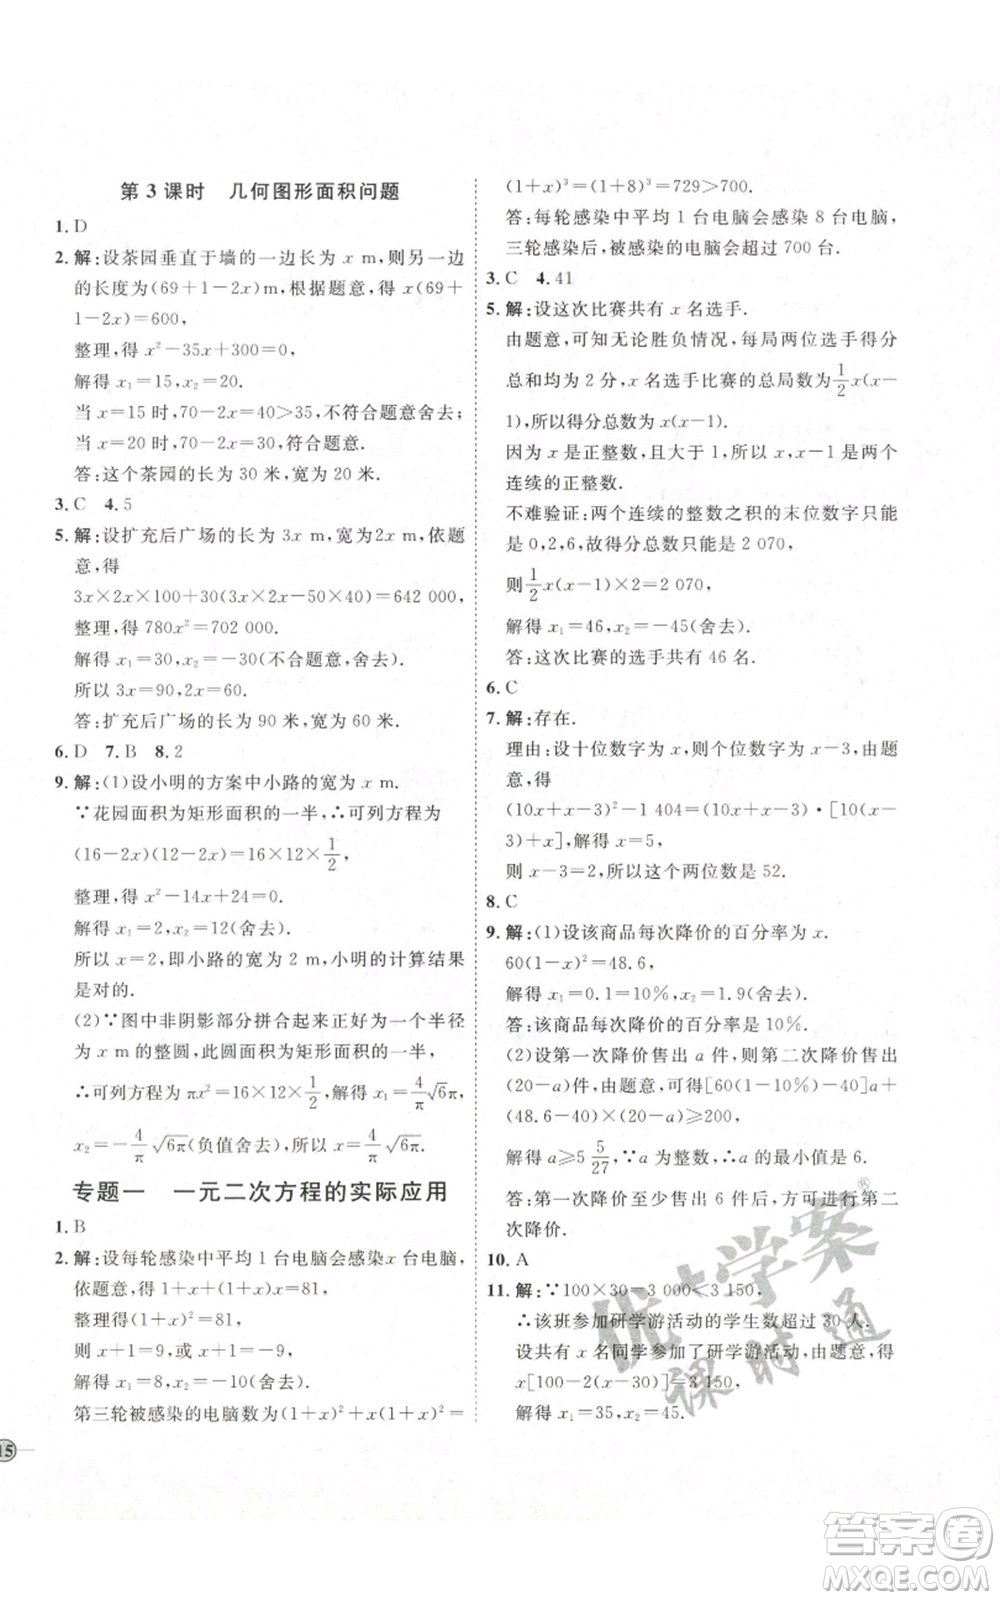 第 3 课时　几何图形面积问题
1. D
2. 解:设茶园垂直于墙的一边长为 x m,则另一边
的长度为(69+1-2x)m,根据题意,得 x(69+
1-2x)=600,
整理,得 x²-35x+300=0,
解得 x₁=15,x₂=20.
当 x=15 时,70-2x=40>35,不符合题意舍去;
当 x=20 时,70-2x=30,符合题意.
答:这个茶园的长为 30 米,宽为 20 米.
3. C  4. 5
5. 解:设扩充后广场的长为 3x m,宽为2x m,依题
意,得
3x×2x×100+30(3x·2x-50×40)=642 000,
整理,得 780x²=702 000.
解得 x₁=30,x₂=-30(不合题意,舍去).
所以 3x=90,2x=60.
答:扩充后广场的长为 90 米,宽为 60 米.
6. D  7. B  8. 2
9. 解:(1)设小明的方案中小路的宽为 x m.
∵花园面积为矩形面积的一半,∴可列方程为
(16-2x)(12-2x)=16×12×1/2,
整理,得 x²-14x+24=0.
解得 x₁=2,x₂=12(舍去).
所以 x=2,即小路的宽为 2 m,小明的计算结果
是对的.
(2)∵图中非阴影部分拼合起来正好为一个半径
为 x m的整圆,此圆面积为矩形面积的一半,
∴可列方程为 πx²=16×12×1/2,解得 x₁=4/π√6π,
x₂=-4/π√6π(负值舍去),所以 x=4/π√6π.
专题一　一元二次方程的实际应用
1. B
2. 解:设每轮感染中平均 1 台电脑会感染 x 台电脑,
依题意,得 1+x+(1+x)x=81,
整理得(1+x)²=81,
则 x+1=9 或 x+1=-9,
解得 x₁=8,x₂=-10(舍去).
第三轮被感染的电脑数为(1+x)²+x(1+x)²=
15
(1+x)³=(1+8)³=729>700.
答:每轮感染中平均 1 台电脑会感染 8 台电脑,
三轮感染后,被感染的电脑会超过 700 台.
3. C  4. 41
5. 解:设这次比赛共有 x 名选手.
由题意,可知无论胜负情况,每局两位选手得分
总和均为 2 分,x 名选手比赛的总局数为1/2x(x-
1),所以得分总数为 x(x-1).
因为 x 是正整数,且大于 1,所以 x,x-1 是两个
连续的正整数.
不难验证:两个连续的整数之积的末位数字只能
是 0,2,6,故得分总数只能是 2 070,
则1/2x(x-1)×2=2 070,
解得 x₁=46,x₂=-45(舍去).
答:这次比赛的选手共有 46 名.
6. C
7. 解:存在.
理由:设十位数字为 x,则个位数字为 x-3,由题
意,得
(10x+x-3)²-1 404=(10x+x-3)·[10(x-
3)+x],解得 x=5,
则 x-3=2,所以这个两位数是 52.
8. C
9. 解:(1)设该商品每次降价的百分率为 x.
60(1-x)²=48.6,
解得 x₁=0.1=10%,x₂=1.9(舍去).
答:该商品每次降价的百分率是 10%.
(2)设第一次降价售出 a 件,则第二次降价售出
(20-a)件,由题意,可得[60(1-10%)-40]a+
(48.6-40)×(20-a)≥200,
解得 a≥5 5/27,∵a 为整数,∴a 的最小值为 6.
答:第一次降价至少售出 6 件后,方可进行第二
次降价.
10. A
11. 解:∵100×30=3 000<3 150,
∴该班参加研学游活动的学生数超过 30 人.
设共有 x 名同学参加了研学游活动,由题意,得
x[100-2(x-30)]=3 150,
解得 x₁=35,x₂=45.
优+学案®
课时通
答案圈
MXQE.COM